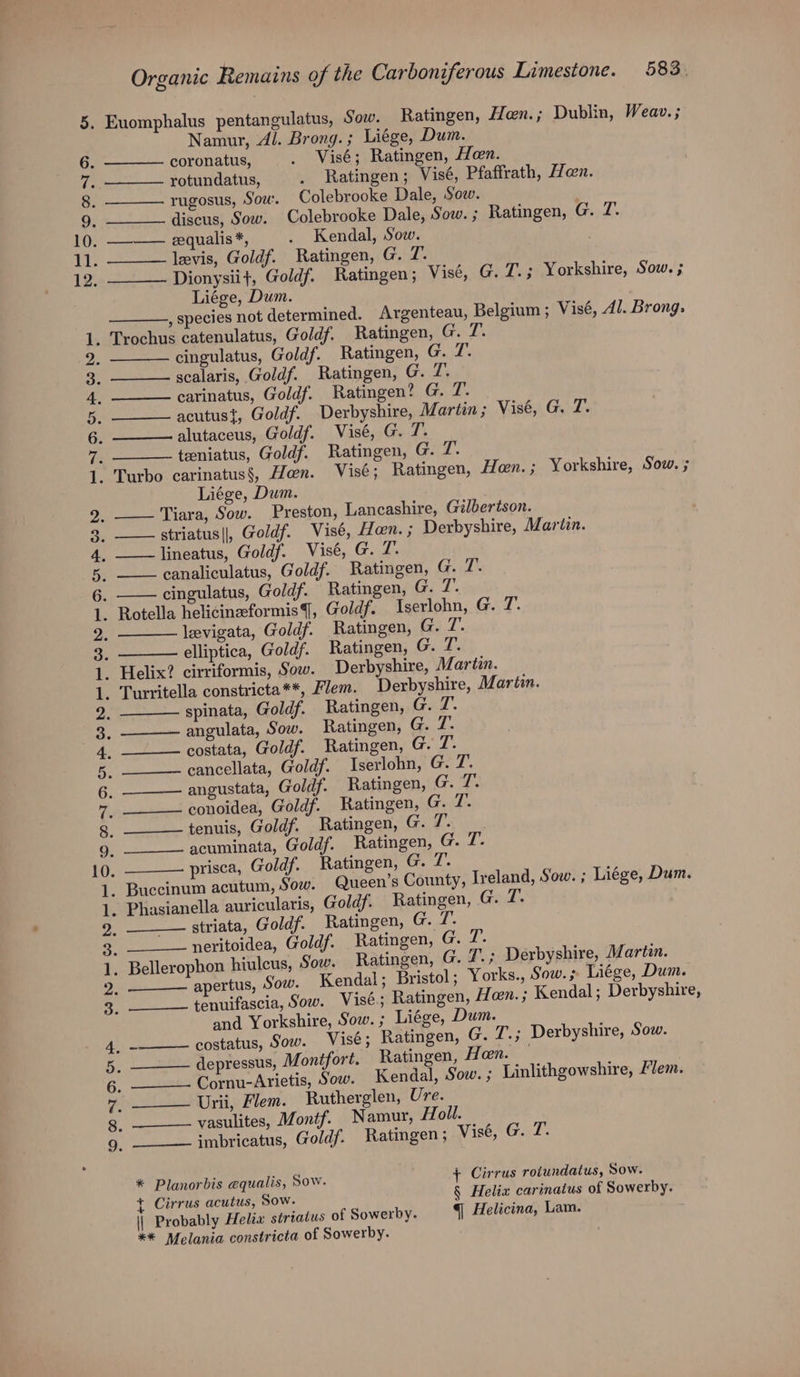 Organic Remains of the Carboniferous Limestone. 583
5. Euomphalus pentangulatus, Sow. Ratingen, Hœn.; Dublin, Weav.;
Namur, Al. Brong.; Liége, Dum.
6. ——— coronatus, . Visé; Ratingen, Hœn.
7. ——— rotundatus, . Ratingen; Visé, Pfaffrath, Hœn.
8. ——— rugosus, Sow. Colebrooke Dale, Sow.
9. ——— discus, Sow. Colebrooke Dale, Sow.; Ratingen, G. T.
10. ——— æqualis*, . Kendal, Sow.
11. ——— lævis, Goldf. Ratingen, G. T.
12. ——— Dionysii†, Goldf. Ratingen; Visé, G. T.; Yorkshire, Sow.;
Liége, Dum.
———, species not determined. Argenteau, Belgium; Visé, Al. Brong.
1. Trochus catenulatus, Goldf. Ratingen, G. T.
2. ——— cingulatus, Goldf. Ratingen, G. T.
3. ——— scalaris, Goldf. Ratingen, G. T.
4. ——— carinatus, Goldf. Ratingen? G. T.
5. ——— acutus‡, Goldf. Derbyshire, Martin; Visé, G. T.
6. ——— alutaceus, Goldf. Visé, G. T.
7. ——— tæniatus, Goldf. Ratingen, G. T.
1. Turbo carinatus§, Hœn. Visé; Ratingen, Hœn.; Yorkshire, Sow.;
Liége, Dum.
2. —— Tiara, Sow. Preston, Lancashire, Gilbertson.
3. —— striatus||, Goldf. Visé, Hœn.; Derbyshire, Martin.
4. —— lineatus, Goldf. Visé, G. T.
5. —— canaliculatus, Goldf. Ratingen, G. T.
6. —— cingulatus, Goldf. Ratingen, G. T.
1. Rotella helicinæformis¶, Goldf. Iserlohn, G. T.
2. ——— lævigata, Goldf. Ratingen, G. T.
3. ——— elliptica, Goldf. Ratingen, G. T.
1. Helix? cirriformis, Sow. Derbyshire, Martin.
1. Turritella constricta**, Flem. Derbyshire, Martin.
2. ——— spinata, Goldf. Ratingen, G. T.
3. ——— angulata, Sow. Ratingen, G. T.
4. ——— costata, Goldf. Ratingen, G. T.
5. ——— cancellata, Goldf. Iserlohn, G. T.
6. ——— angustata, Goldf. Ratingen, G. T.
7. ——— conoidea, Goldf. Ratingen, G. T.
8. ——— tenuis, Goldf. Ratingen, G. T.
9. ——— acuminata, Goldf. Ratingen, G. T.
10. ——— prisca, Goldf. Ratingen, G. T.
1. Buccinum acutum, Sow. Queen's County, Ireland, Sow.; Liége, Dum.
1. Phasianella auricularis, Goldf. Ratingen, G. T.
2. ——— striata, Goldf. Ratingen, G. T.
3. ——— neritoidea, Goldf. Ratingen, G. T.
1. Bellerophon hiulcus, Sow. Ratingen, G. T.; Derbyshire, Martin.
2. ——— apertus, Sow. Kendal; Bristol; Yorks., Sow.; Liége, Dum.
3. ——— tenuifascia, Sow. Visé; Ratingen, Hœn.; Kendal; Derbyshire,
and Yorkshire, Sow.; Liége, Dum.
4. ——— costatus, Sow. Visé; Ratingen, G. T.; Derbyshire, Sow.
5. ——— depressus, Montfort. Ratingen, Hœn.
6. ——— Cornu-Arietis, Sow. Kendal, Sow.; Linlithgowshire, Flem.
7. ——— Urii, Flem. Rutherglen, Ure.
8. ——— vasulites, Montf. Namur, Holl.
9. ——— imbricatus, Goldf. Ratingen; Visé, G. T.
* Planorbis æqualis, Sow. † Cirrus rotundatus, Sow.
‡ Cirrus acutus, Sow. § Helix carinatus of Sowerby.
|| Probably Helix striatus of Sowerby. ¶ Helicina, Lam.
** Melania constricta of Sowerby.